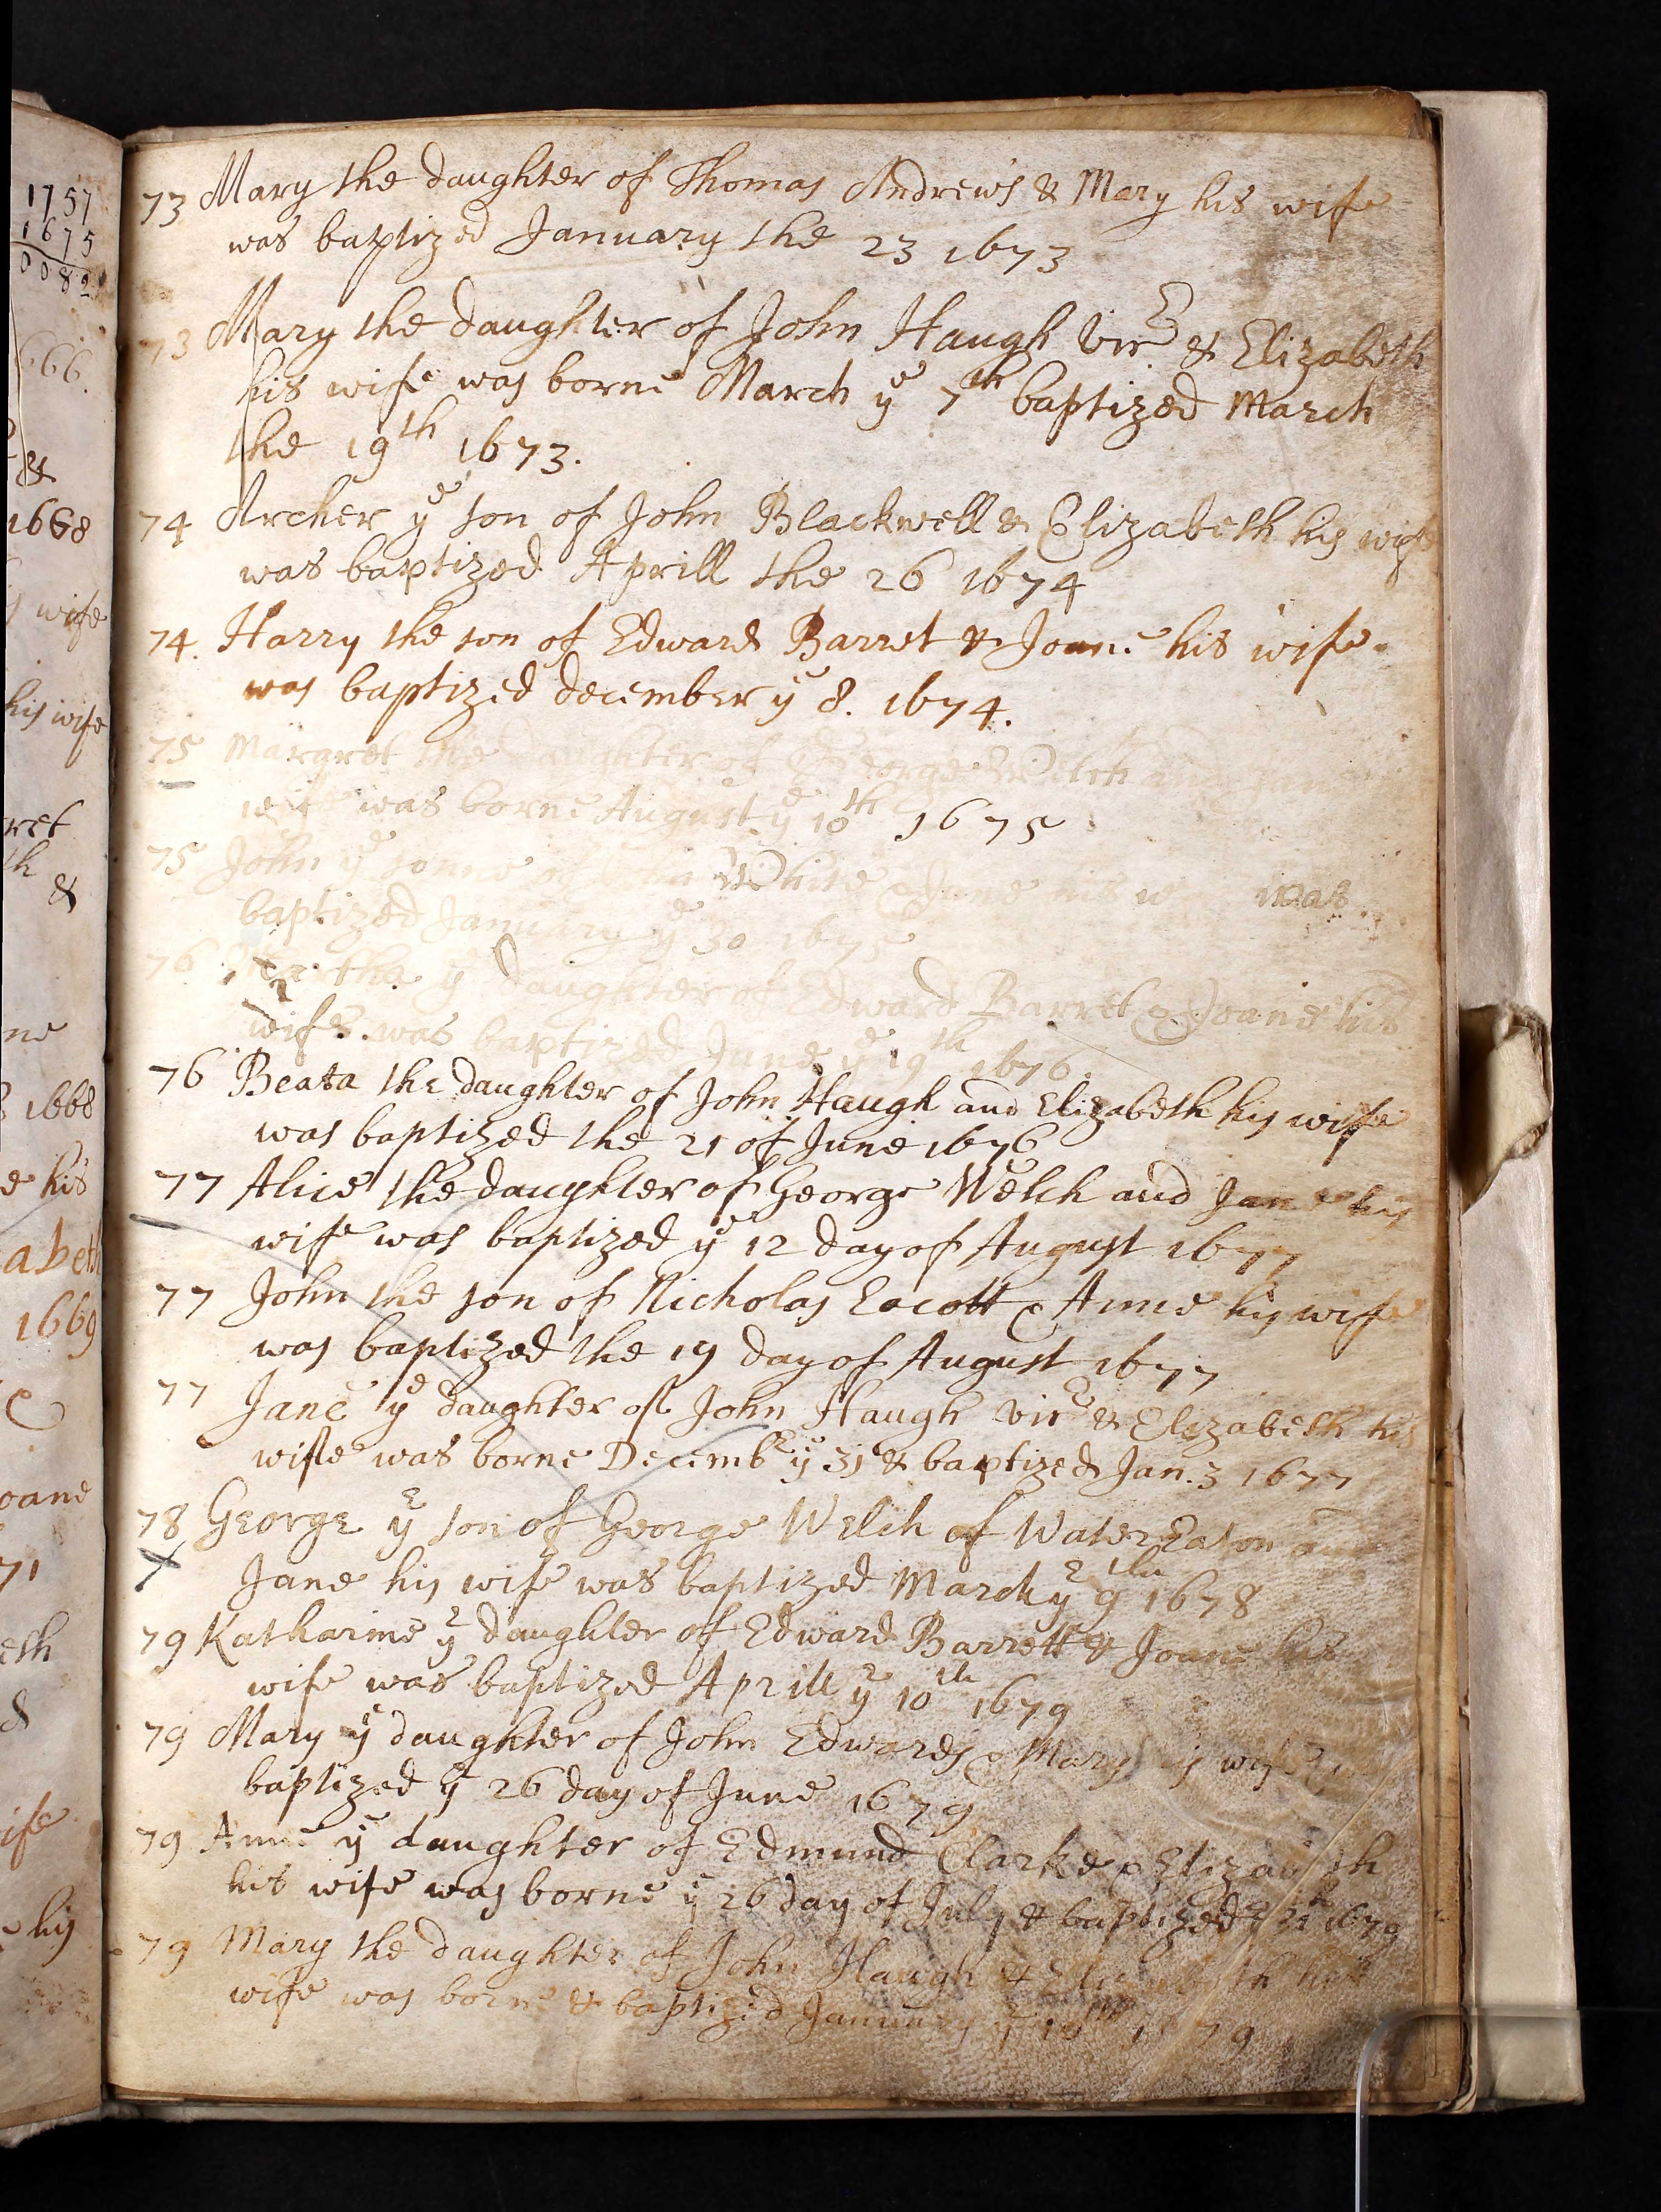 1757
1675
0082
666.
&
1668
wife
his wife
ret
th
&
ne
1668
e his
abeth
1669
oane
71
eth
&
ife
his
73 Mary the daughter of Thomas Andrews & Mary his wife
was baptized January the 23 1673
73 Mary the daughter of John Haugh Vir & Elizabeth
his wife was borne March ye 7th baptized March
the 19th 1673.
74 Archer ye son of John Blackwell & Elizabeth his wife
was baptized Aprill the 26 1674
74. Harry the son of Edward Barret & Joane his wife
was baptized december ye 8. 1674.
75 Margret the daughter of George Welch and
wife was borne August ye 10th 1675
75 John ye sonne of White & his was
baptized January ye 30 1675
76 ye daughter of Edward Barret & Joane his
wife was baptized June ye 19th 1676.
76 Beata the daughter of John Haugh and Elizabeth his wife
was baptized the 21 of June 1676
77 Alice the daughter of George Welch and Jane his
wife was baptized ye 12 day of August 1677
77 John the son of Nicholas Eacott & Anne his wife
was baptized the 19 day of August 1677
77 Jane ye daughter of John Haugh Vir & Elizabeth his
wife was borne Decembr ye 31 & baptized Jan. 3 1677
78 George ye son of George Welch of Water Eaton and
Jane his wife was baptized March ye 9th 1678
79 Katharine ye daughter of Edward Barrett & Joane his
wife was baptized Aprill ye 10th 1679
79 Mary ye daughter of John Edwards & Mary his wife
baptized ye 26 day of June 1679
79 Anne ye daughter of Edmund Clarke & Elizabeth
his wife was borne ye 26 day of July & baptized ye 1679
79 Mary the daughter of John Haugh & Elizabeth his
wife was borne & baptized January ye 1679